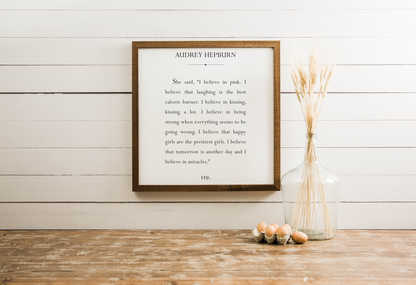 AUDREY HEPBURN
She said, "I believe in pink. I
believe that laughing is the best
calorie burner. I believe in kissing,
kissing a lot. I believe in being
strong when everything seems to be
going wrong. I believe that happy
girls are the prettiest girls. I believe
that tomorrow is another day and I
believe in miracles."
119.